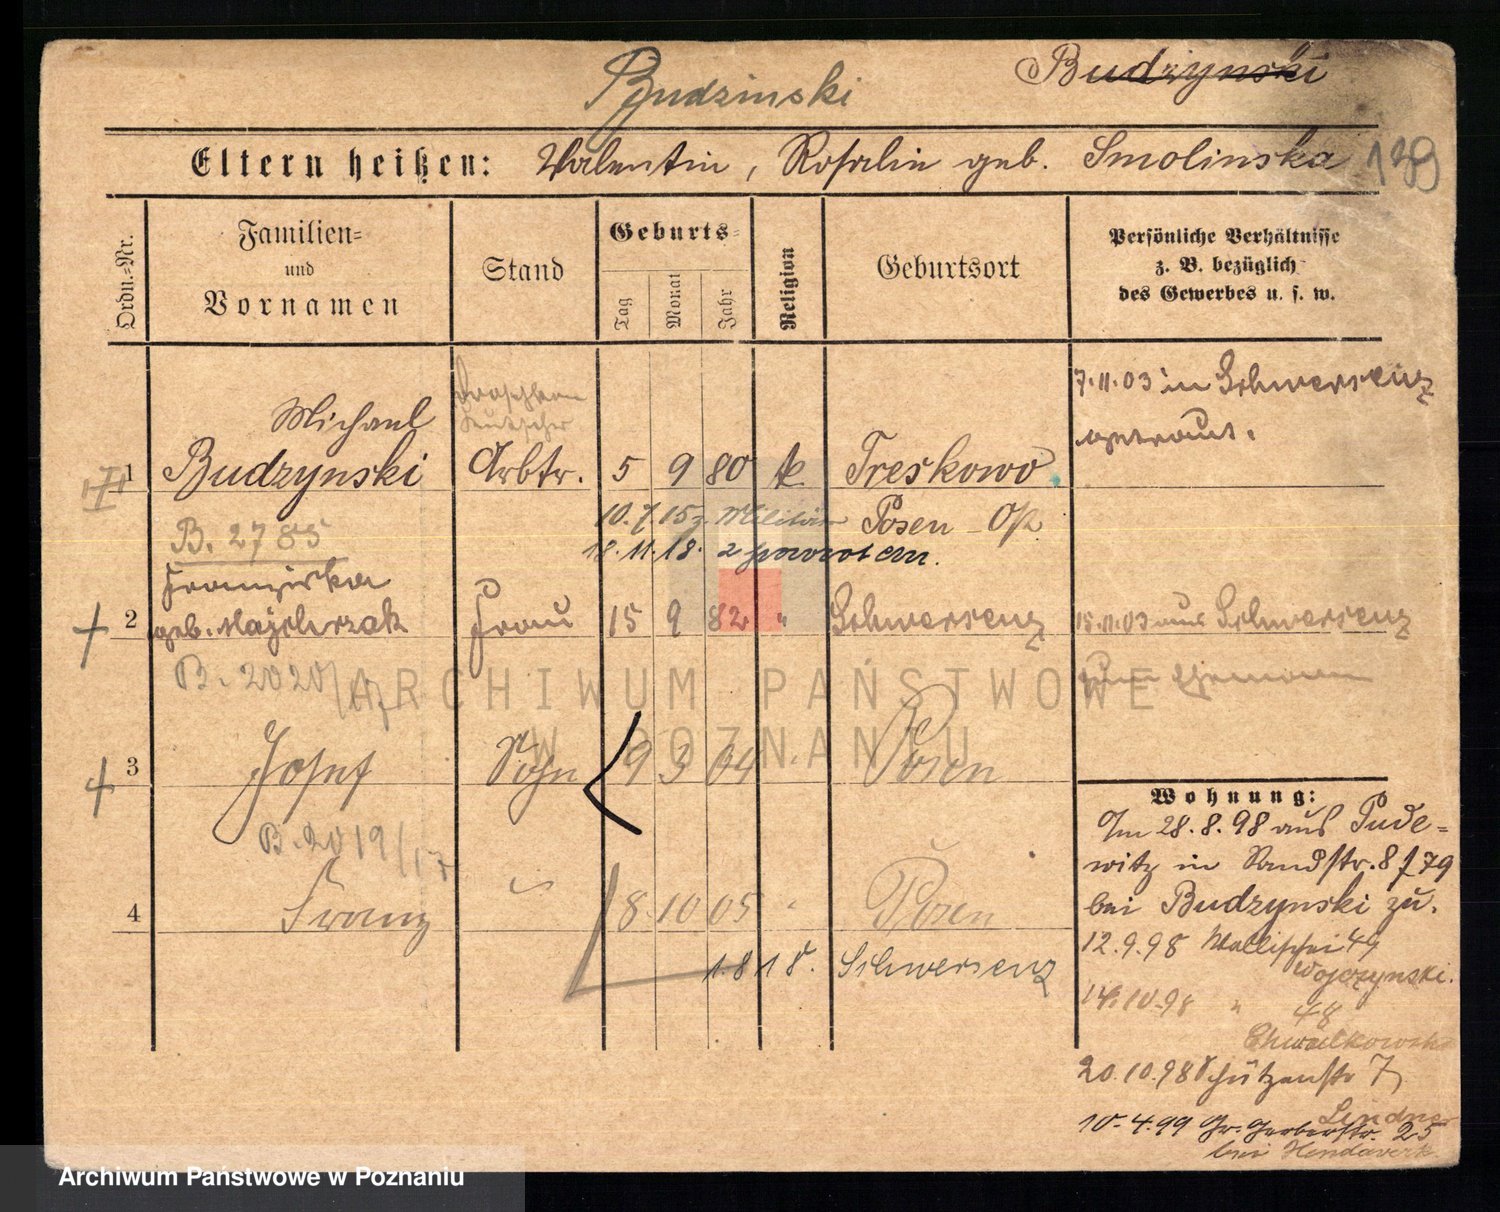 Budzinski
Budzynski
Eltern heißen: Valentin, Rosalie geb. Smolinska
139
Ordn.-Nr.
Familien-
und
Vornamen
Stand
Geburts-
Tag
Monat
Jahr
Religion
Geburtsort
Persönliche Verhältnisse
z. B. bezüglich
des Gewerbes u. s. w.
7.11.03 in Schwersenz
getraut.
Michael
1 Budzynski Arbtr. 5 9 80 k. Treskowo
10.7.15 z. Militär Posen - O/2
B. 2785
18.11.18. z powrotem.
Franziska
2 geb. Majchrzak Frau 15 9 82 " Schwersenz 15.11.03 aus Schwersenz
zum Ehemann
B. 2020/17
3 Josef Sohn 9 3 04 " Posen
B. 2019/17
4 Franz " 8 10 05 " Posen
1.8 18. Schwersenz
Wohnung:
Am 28.8.98 aus Pude-
witz in Sandstr. 8 f 79
bei Budzynski zu.
12.9.98 Wallischei 49
Wojczynski.
14.10.98 " 48
Chwalkowska
20.10.98 Schützenstr 7
Lindner
10.4.99 Gr. Gerberstr. 25
bei Hendaverk
ARCHIWUM PAŃSTWOWE
W POZNANIU
Archiwum Państwowe w Poznaniu